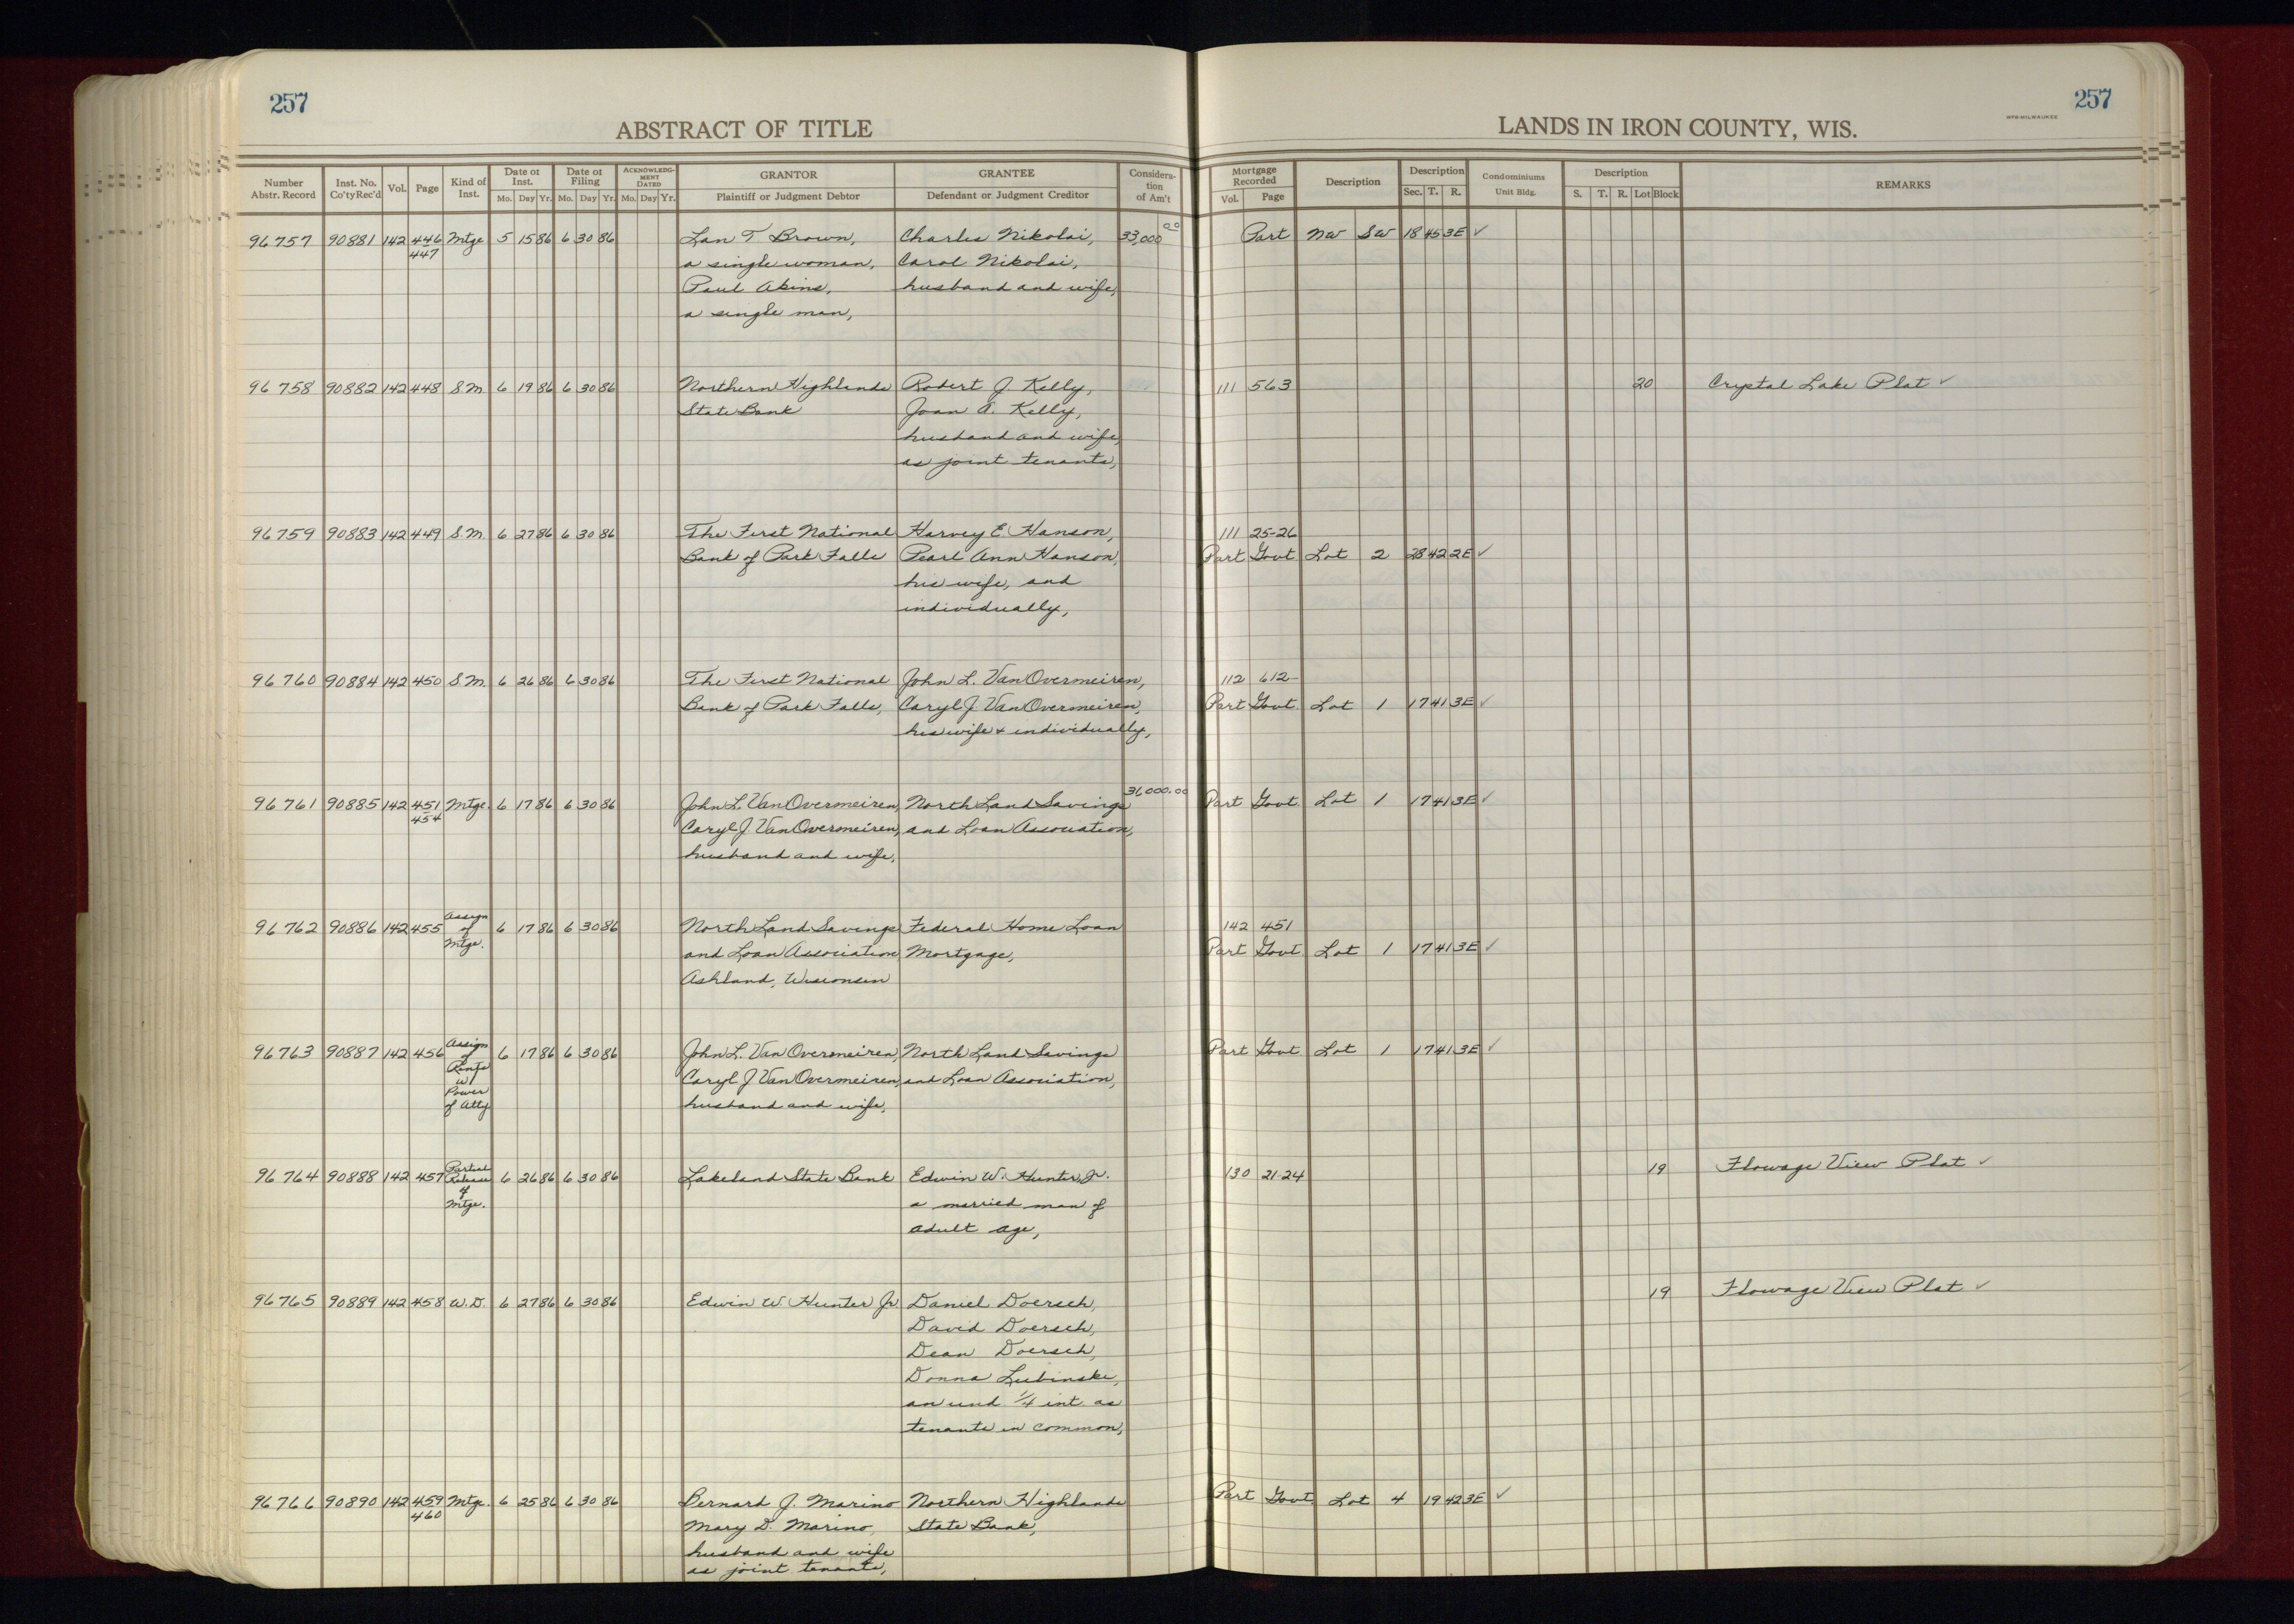 257
257
ABSTRACT OF TITLE
LANDS IN IRON COUNTY, WIS.
Number Abstr. Record
Inst. No. Co'ty Rec'd
Vol.
Page
Kind of Inst.
Date of Inst.
Mo. Day Yr.
Date of Filing
Mo. Day Yr.
ACKNOWLEDG-MENT DATED
Mo. Day Yr.
GRANTOR
Plaintiff or Judgment Debtor
GRANTEE
Defendant or Judgment Creditor
Considera-tion of Am't
Mortgage Recorded
Vol. Page
Description
Description
Sec. T. R.
Condominiums
Unit Bldg.
Description
S. T. R. Lot Block
REMARKS
96757 90881 142 446 Mtge 5 15 86 6 30 86 Lan T Brown, Charles Nikolai, 33,000 00 Part NW SW 18 45 3E ✓
447 a single woman, Carol Nikolai,
Paul Akins, husband and wife,
a single man,
96758 90882 142 448 S.M. 6 19 86 6 30 86 Northern Highlands Robert J. Kelly, 111 563 20 Crystal Lake Plat ✓
State Bank Joan A. Kelly,
husband and wife,
as joint tenants,
96759 90883 142 449 S.M. 6 27 86 6 30 86 The First National Harvey E. Hanson, 111 25-26
Bank of Park Falls Pearl Ann Hanson, Part Govt Lot 2 28 42 2E ✓
his wife, and
individually,
96760 90884 142 450 S.M. 6 26 86 6 30 86 The First National John L. VanOvermeiren, 112 612
Bank of Park Falls, Caryl J. VanOvermeiren, Part Govt. Lot 1 17 41 3E ✓
his wife & individually,
96761 90885 142 451 Mtge. 6 17 86 6 30 86 John L. VanOvermeiren, North Land Savings 31,000.00 Part Govt. Lot 1 17 41 3E ✓
454 Caryl J. VanOvermeiren, and Loan Association,
husband and wife,
96762 90886 142 455 Assign of Mtge. 6 17 86 6 30 86 North Land Savings Federal Home Loan 142 451
and Loan Association Mortgage, Part Govt. Lot 1 17 41 3E ✓
Ashland, Wisconsin
96763 90887 142 456 Assign of Rents w/ Power of Atty 6 17 86 6 30 86 John L. VanOvermeiren, North Land Savings Part Govt Lot 1 17 41 3E ✓
Caryl J VanOvermeiren, and Loan Association,
husband and wife,
96764 90888 142 457 Partial Release of Mtge. 6 26 86 6 30 86 Lakeland State Bank Edwin W. Hunter, Jr. 130 21-24 19 Flowage View Plat ✓
a married man of
adult age,
96765 90889 142 458 W.D. 6 27 86 6 30 86 Edwin W. Hunter Jr. Daniel Doersch, 19 Flowage View Plat ✓
David Doersch,
Dean Doersch,
Donna Lubinski,
an und 1/4 int. as
tenants in common,
96766 90890 142 459 Mtge. 6 25 86 6 30 86 Bernard J. Marino Northern Highlands Part Govt. Lot 4 19 42 3E ✓
460 Mary D. Marino, State Bank,
husband and wife
as joint tenants,